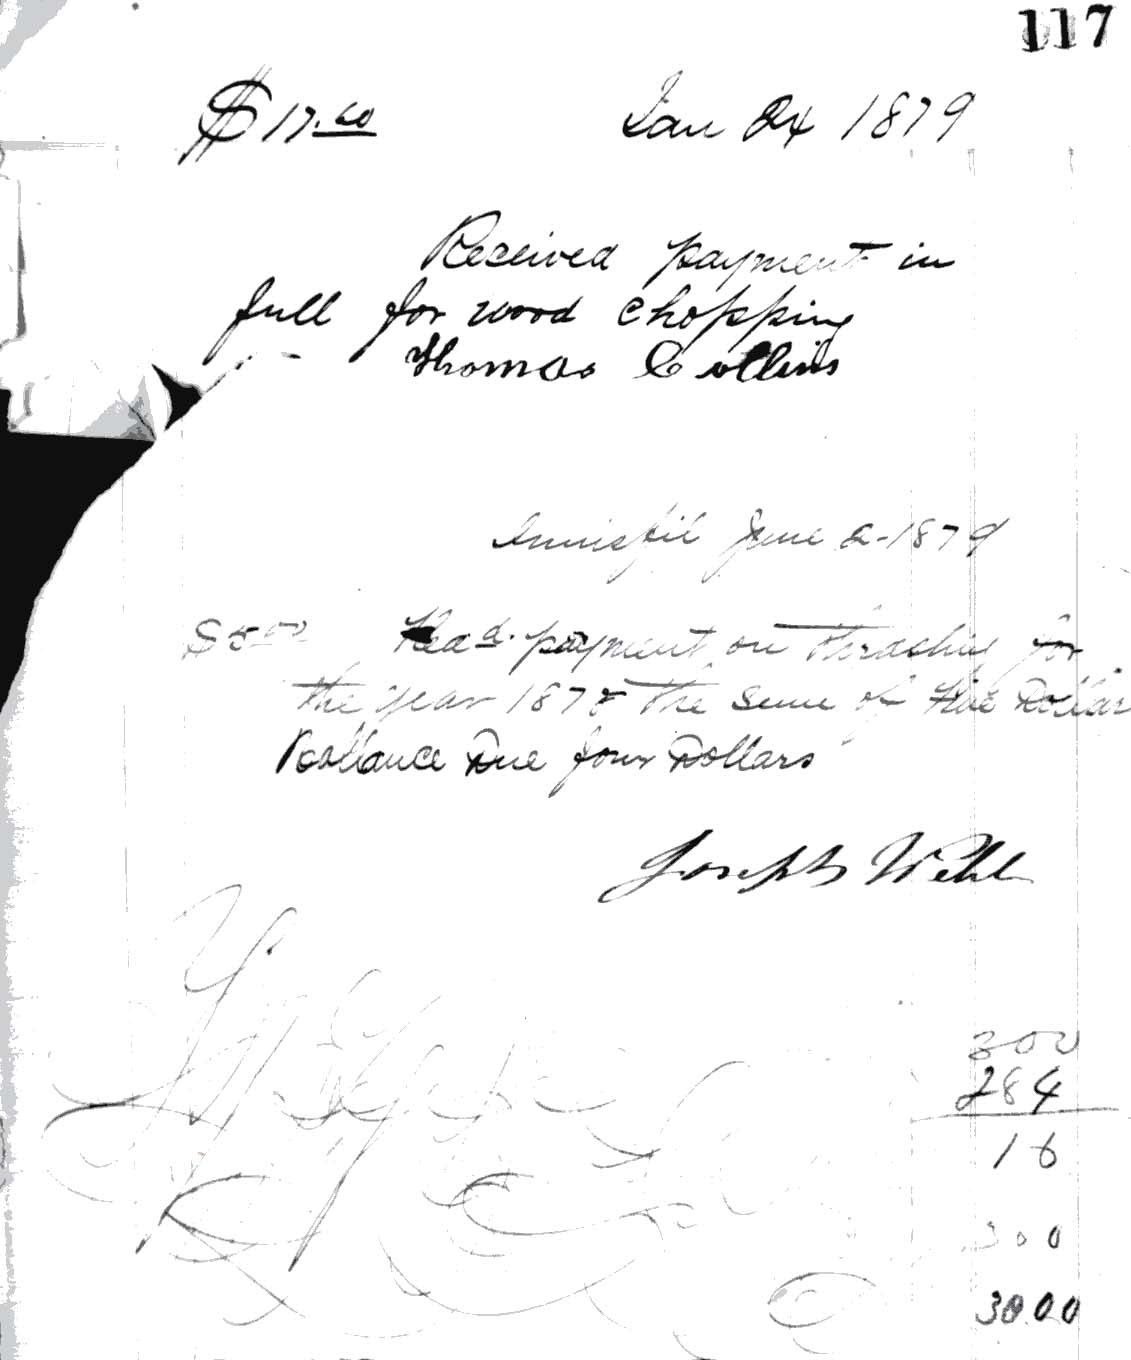 117
$17.60 Jan 24 1879
Received payment in
full for wood chopping
Thomas Collins
Innisfil June 2-1879
$5.00 Read. payment on thrashing for
the year 1878 the sum of Five Dollar
Ballance Due four Dollars
Joseph Webb
300
284
16
300
3000